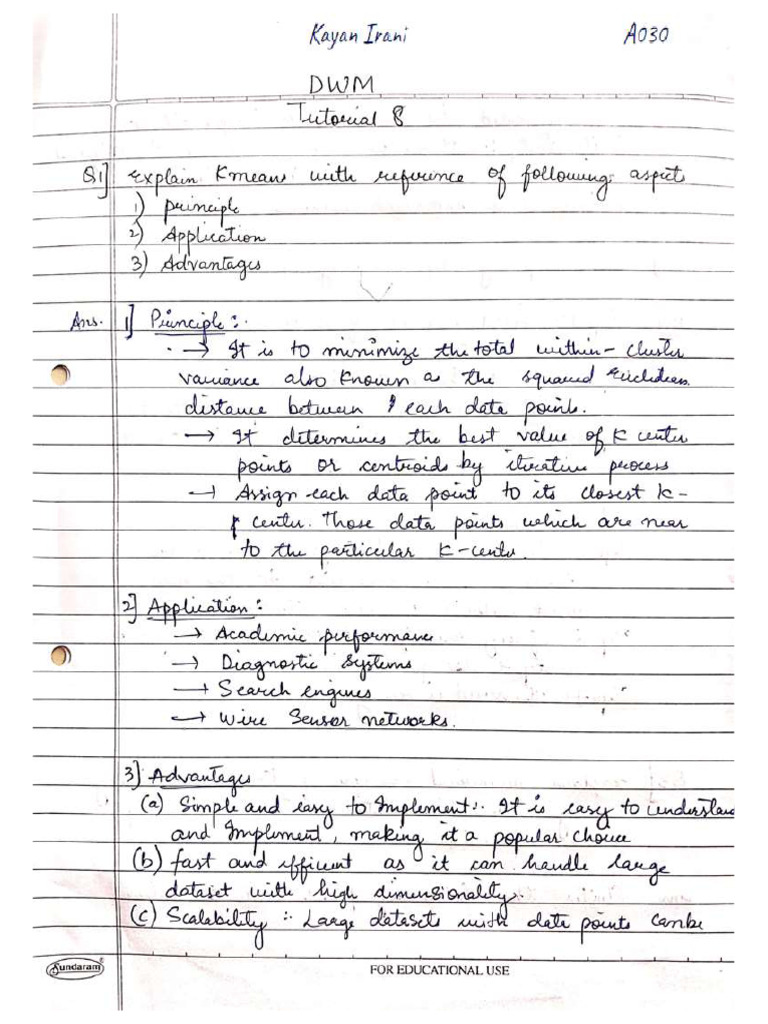 Kayan Irani A030
DWM
Tutorial 8
Q1] Explain Kmeans with reference of following aspects
1) principle
2) Application
3) Advantages
Ans. 1] Principle :-
→ It is to minimize the total within-cluster
variance also known as the squared Euclidean
distance between each data points.
→ It determines the best value of K center
points or centroids by iterative process
→ Assign each data point to its closest k-
center. Those data points which are near
to the particular K-center
2] Application :
→ Academic performance
→ Diagnostic Systems
→ Search engines
→ Wire Sensor networks.
3] Advantages
(a) Simple and easy to Implement:- It is easy to understand
and Implement, making it a popular choice
(b) fast and efficient as it can handle large
dataset with high dimensionality.
(c) Scalability :- Large datasets with data points can be
Sundaram
FOR EDUCATIONAL USE